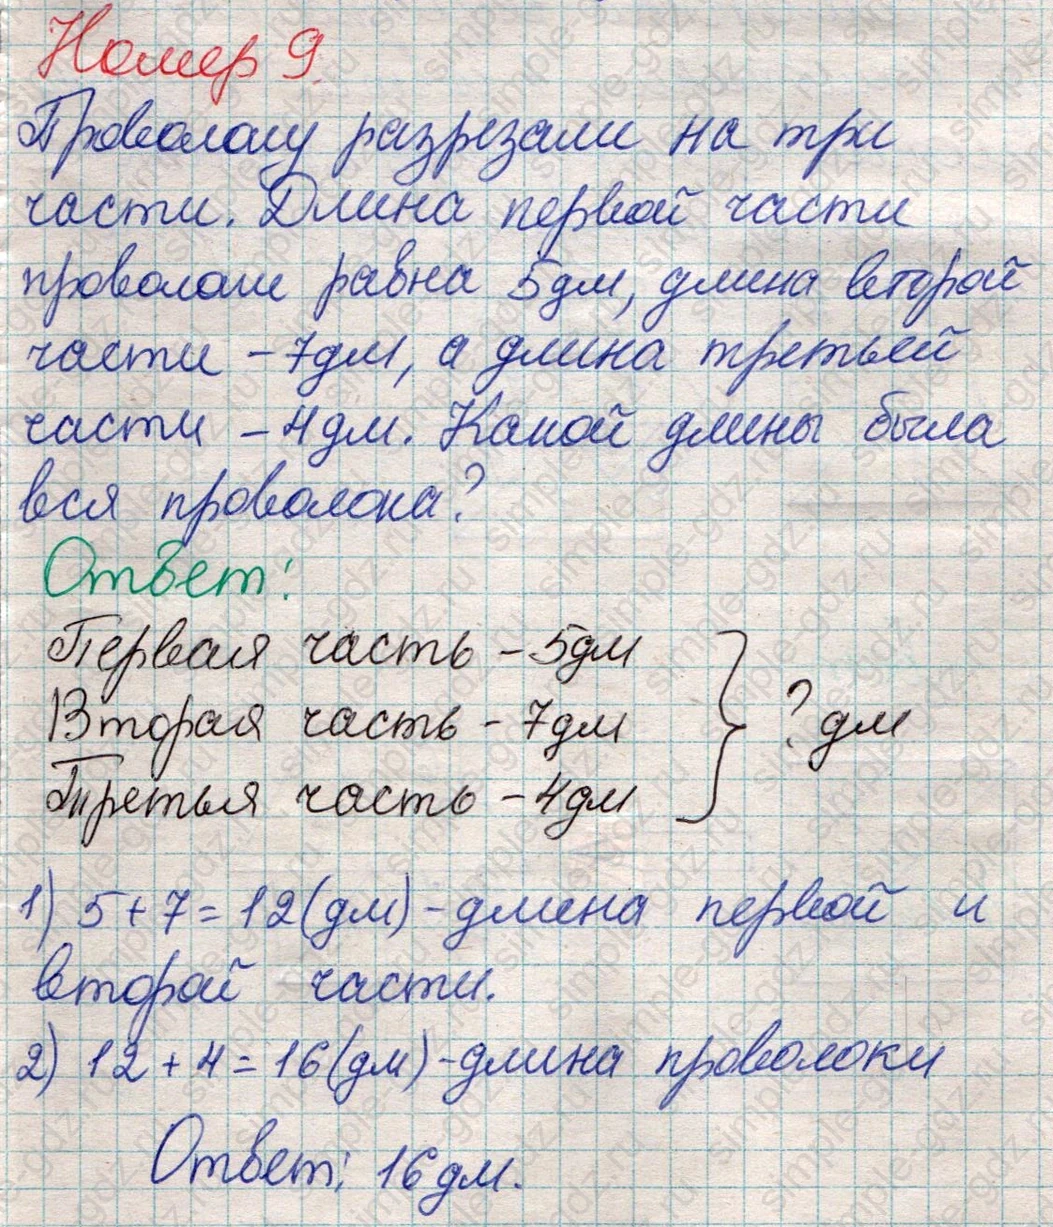 Номер 9.
Проволоку разрезали на три
части. Длина первой части
проволоки равна 5дм, длина второй
части - 7дм, а длина третьей
части - 4дм. Какой длины была
вся проволока?
Ответ:
Первая часть - 5дм
Вторая часть - 7дм
Третья часть - 4дм
? дм
1) 5+7=12(дм)-длина первой и
второй части.
2) 12+4=16(дм)-длина проволоки
Ответ: 16дм.